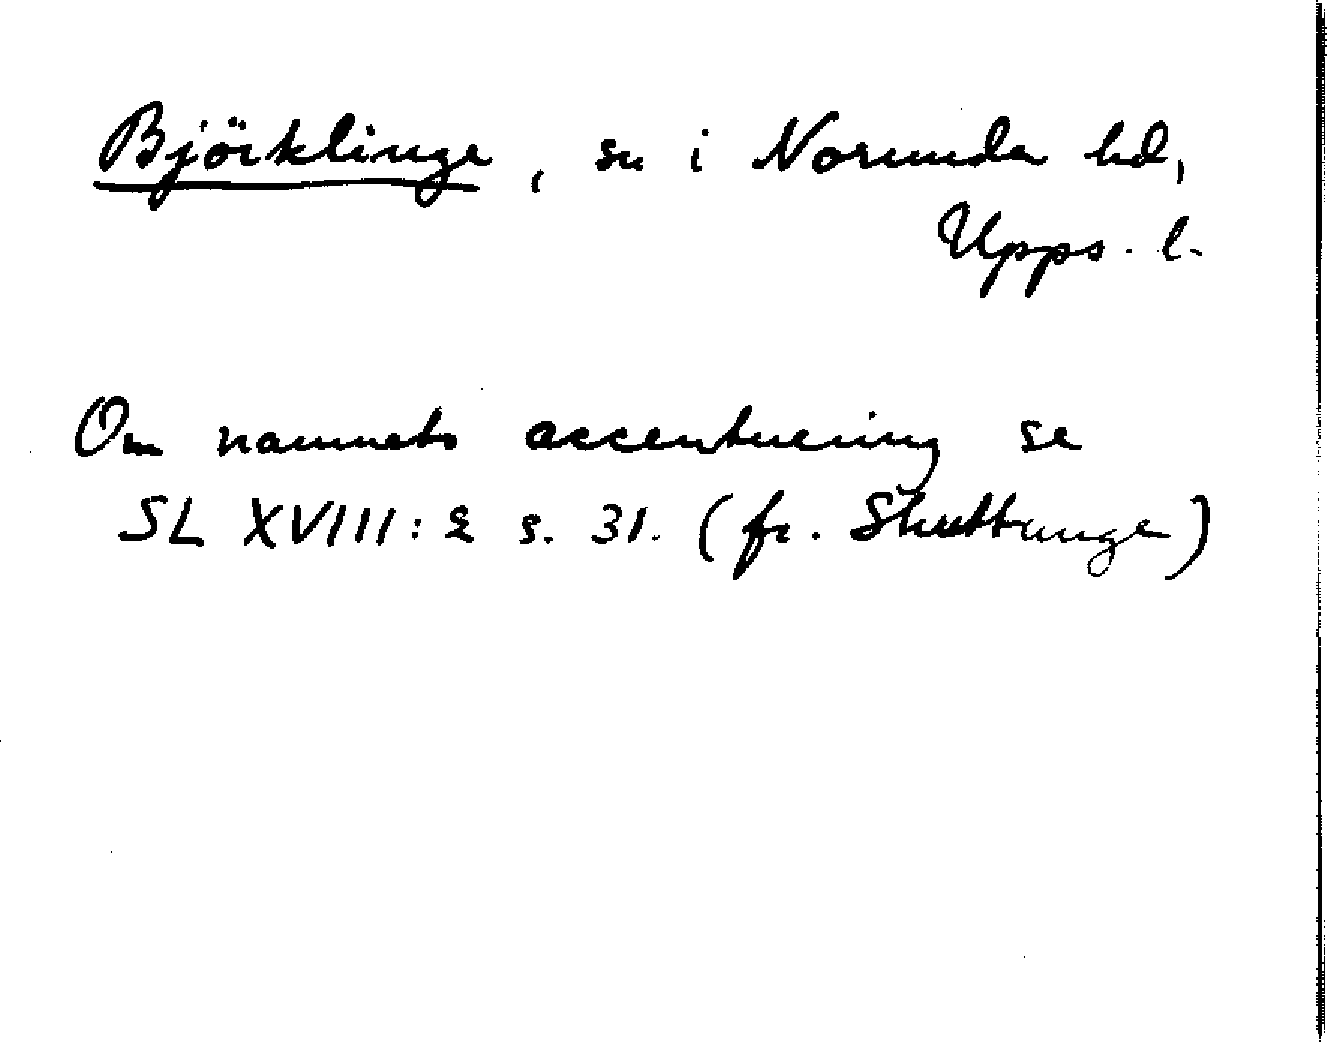 Björklinge, sn i Norunda hd,
Upps. l.
Om namnets accentuering se
SL XVIII: 2 s. 31. (fr. Skuttunge)